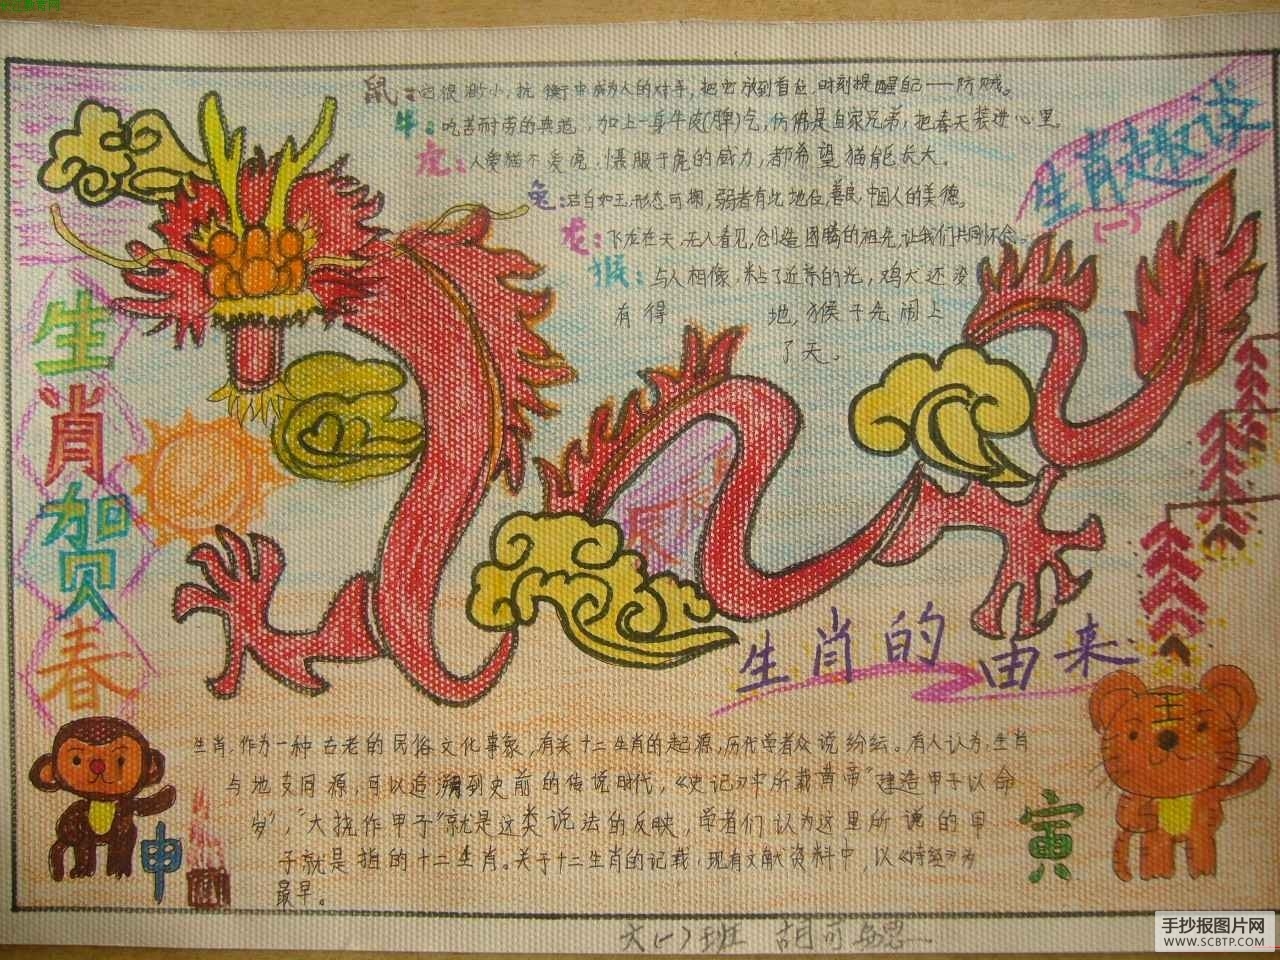 鼠:它很渺小,抗衡中成为人的对手,把它放到首位,时刻提醒自己——防贼。
牛:吃苦耐劳的典范,加上一身牛皮(脾)气,仿佛是自家兄弟,把春天装进心里
虎:人爱猫不爱虎.慑服于虎的威力,都希望猫能长大.
兔:洁白如玉,形态可掬,弱者有此地位,善良,中国人的美德。
龙:飞龙在天,无人看见,创造图腾的祖先,让我们共同怀念。
猴:与人相像,粘了近亲的光,鸡犬还没
有得 地,猴子先闹上
了天。
生肖趣谈
(一)
生肖贺春
生肖的由来
生肖,作为一种古老的民俗文化事象,有关十二生肖的起源,历代学者众说纷纭。有人认为,生肖
与地支同源,可以追溯到史前的传说时代,《史记》中所载黄帝"建造甲子以命
岁","大挠作甲子"就是这类说法的反映,学者们认为这里所说的甲
子就是指的十二生肖。关于十二生肖的记载,现有文献资料中,以《诗经》为
最早。
申
寅
六(一)班
手抄报图片网
WWW.SCBTP.COM